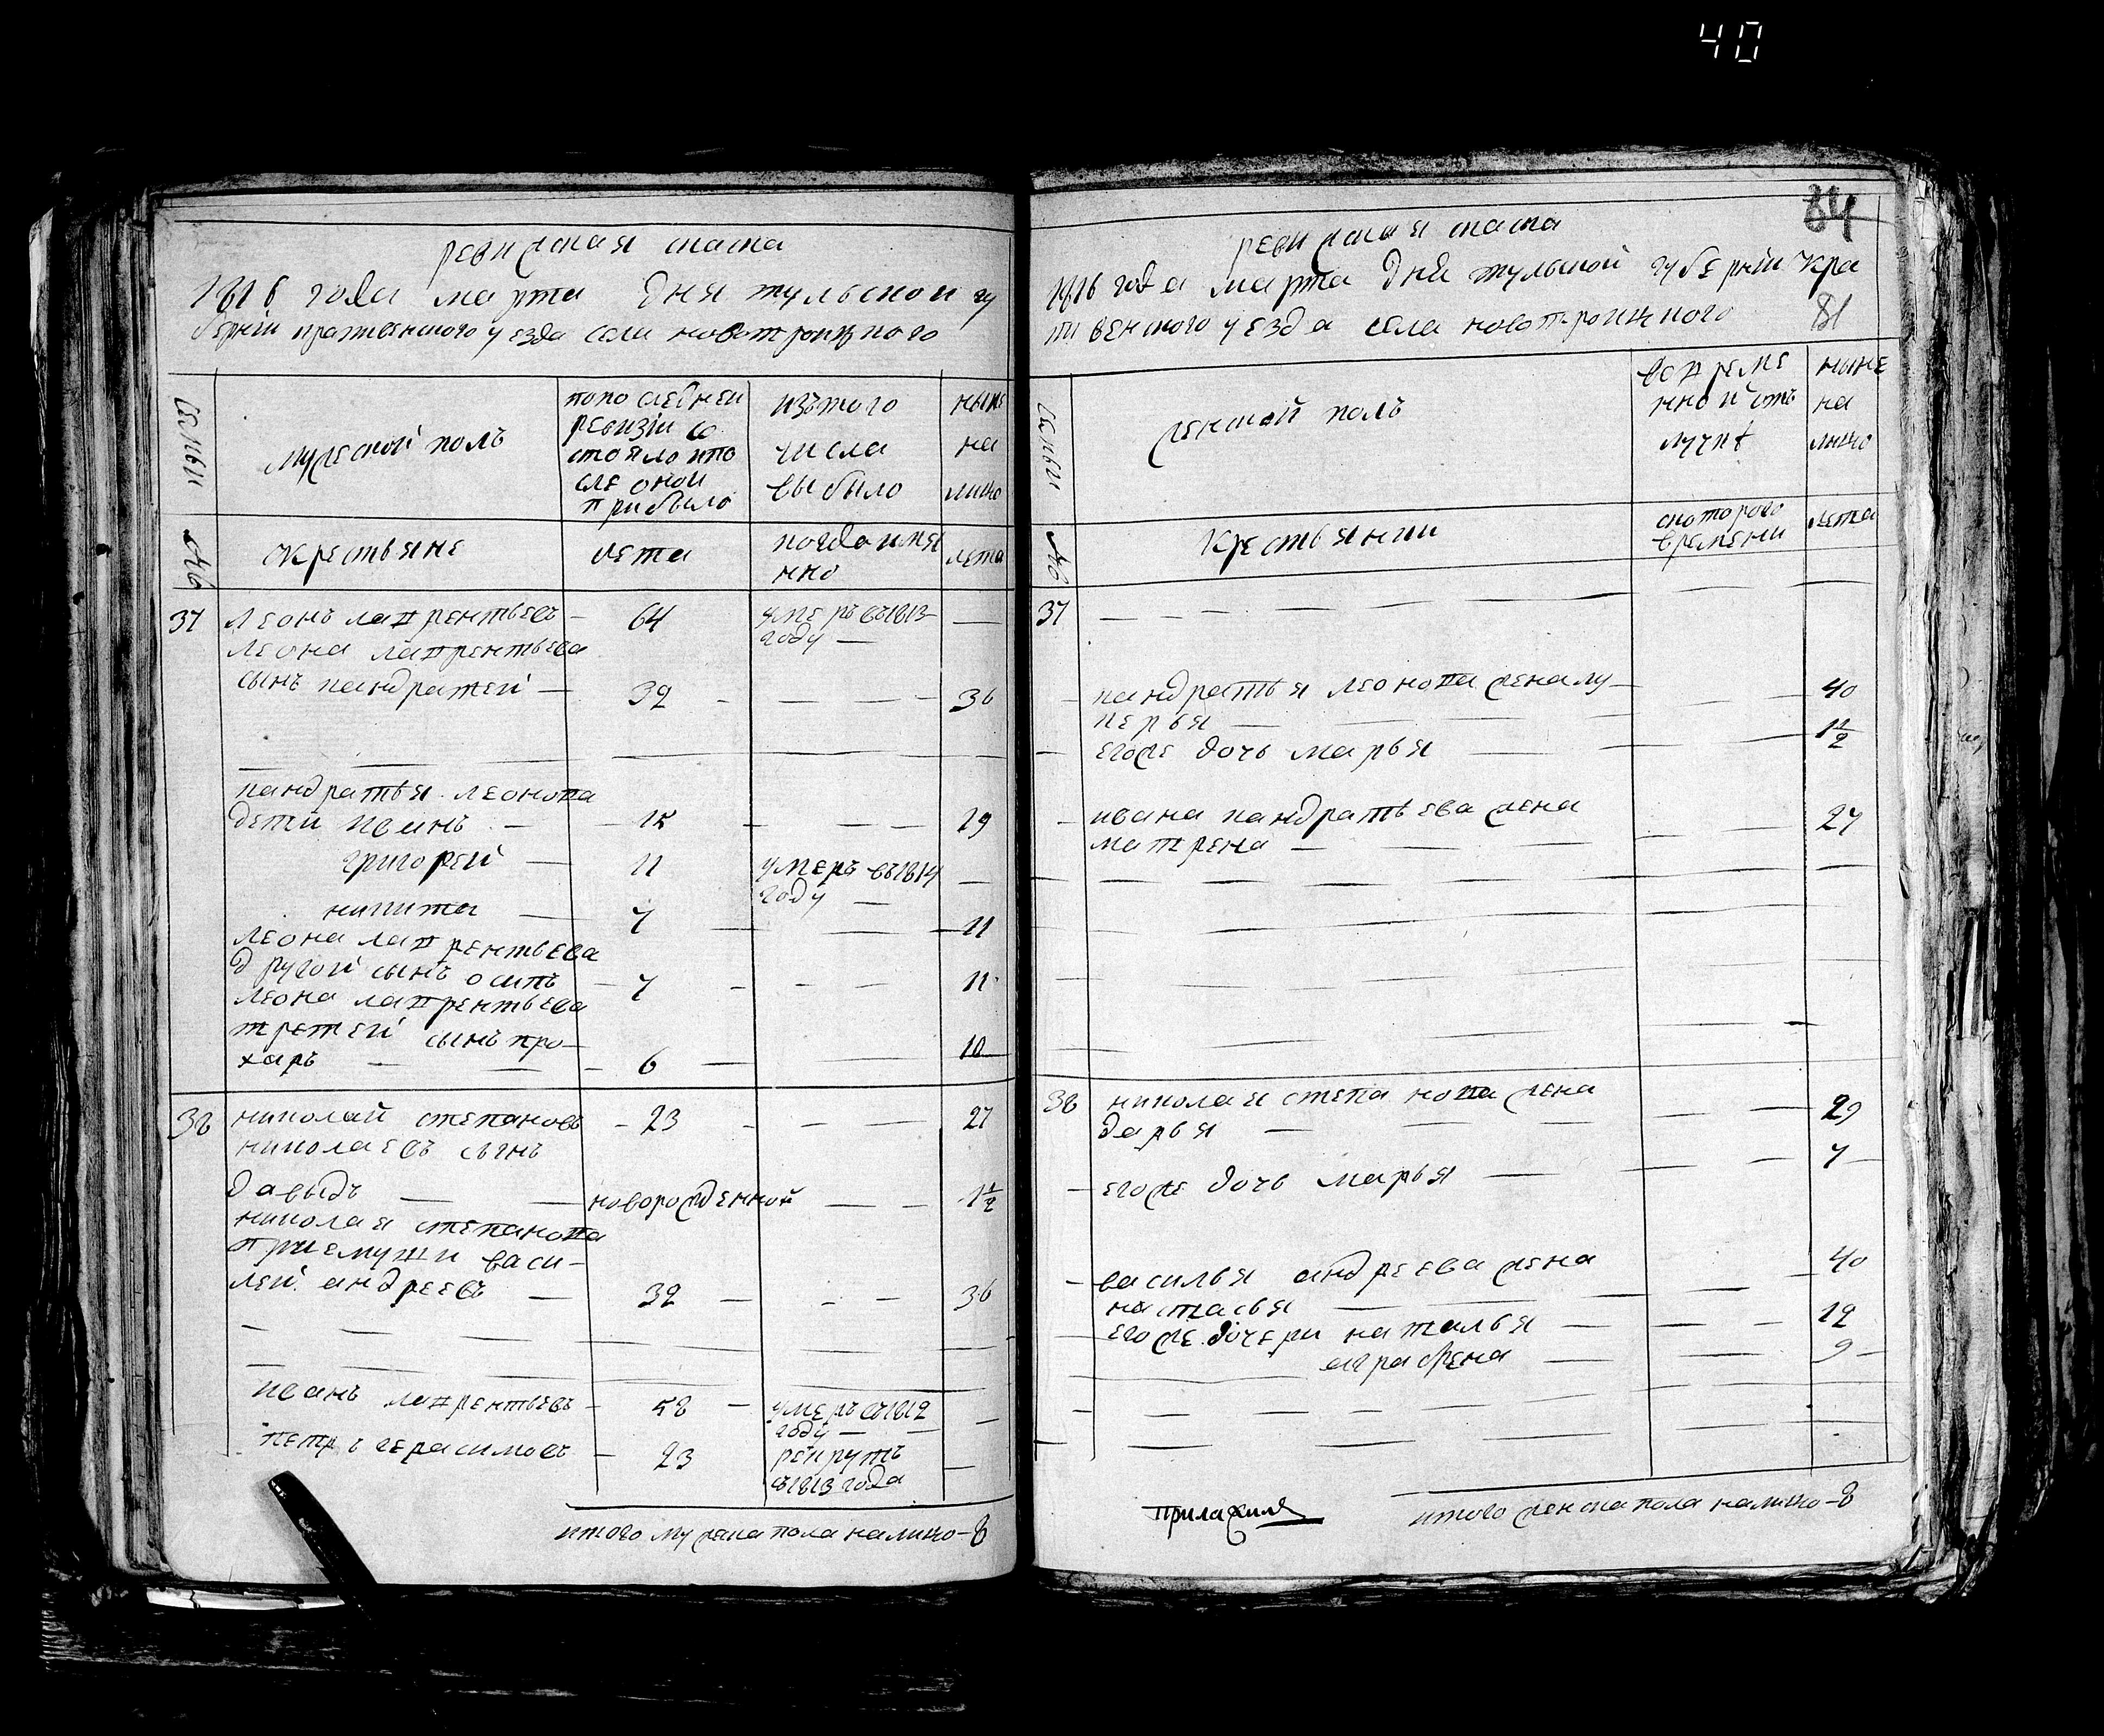 40
ревижская скаска
1816 года марта дня тульской гу
берніи крапивенского уезда села новотроицкого
семьи
мужеской полъ
попоследней
ревизіи со
стояло ипо
сле оной
прибыло
изътого
числа
выбыло
ныне
на
лицо
№
крестьяне
лета
когда имя
нно
лета
37 леонъ лаврентьевъ — 64 умеръ въ1813 —
году —
леона лаврентьева
сынъ кандратей — 32 - — — — 36
кандратья леонова
дети иванъ — 15 — — — 19
григорей — 11 умеръ въ1814 —
году —
никита — 7 — — 11
леона лаврентьева
другой сынъ осипъ — 7 - - — 11
леона лаврентьева
третей сынъ про-
харъ — — 6 — — 10
38 николай степановъ - 23 - — — 27
николаевъ сынъ
давыдъ — — новорожденной — — 1 1/2
николая степанова
приемыши васи-
лей андреевъ — 32 — - — 36
иванъ лаврентьевъ - 58 — умеръ въ1812 —
году — —
петръ герасимовъ — 23 рекрутъ —
въ1813 года
итого мужска пола налицо - 8
84
ревижская скаска
1816 года марта дня тульской губерніи кра
пивенского уезда села новотроицкого
81
семьи
женской полъ
вовреме
нной отъ
лучке
ныне
на
лицо
№
крестьянки
скоторого
времени
лета
37 — — — — — — —
кандратья леонова жена лу- — 40
керья — — —
егоже дочь марья — — — 1 1/2
ивана кандратьева жена 27
матрена — — — — —
38 николая степанова жена — — 29
дарья — — —
егоже дочь марья — — — 7
василья андреева жена — 40
настасья — — —
егоже дочери наталья — — 12
аграфена — — 9
приложилъ
итого женска пола налицо - 8